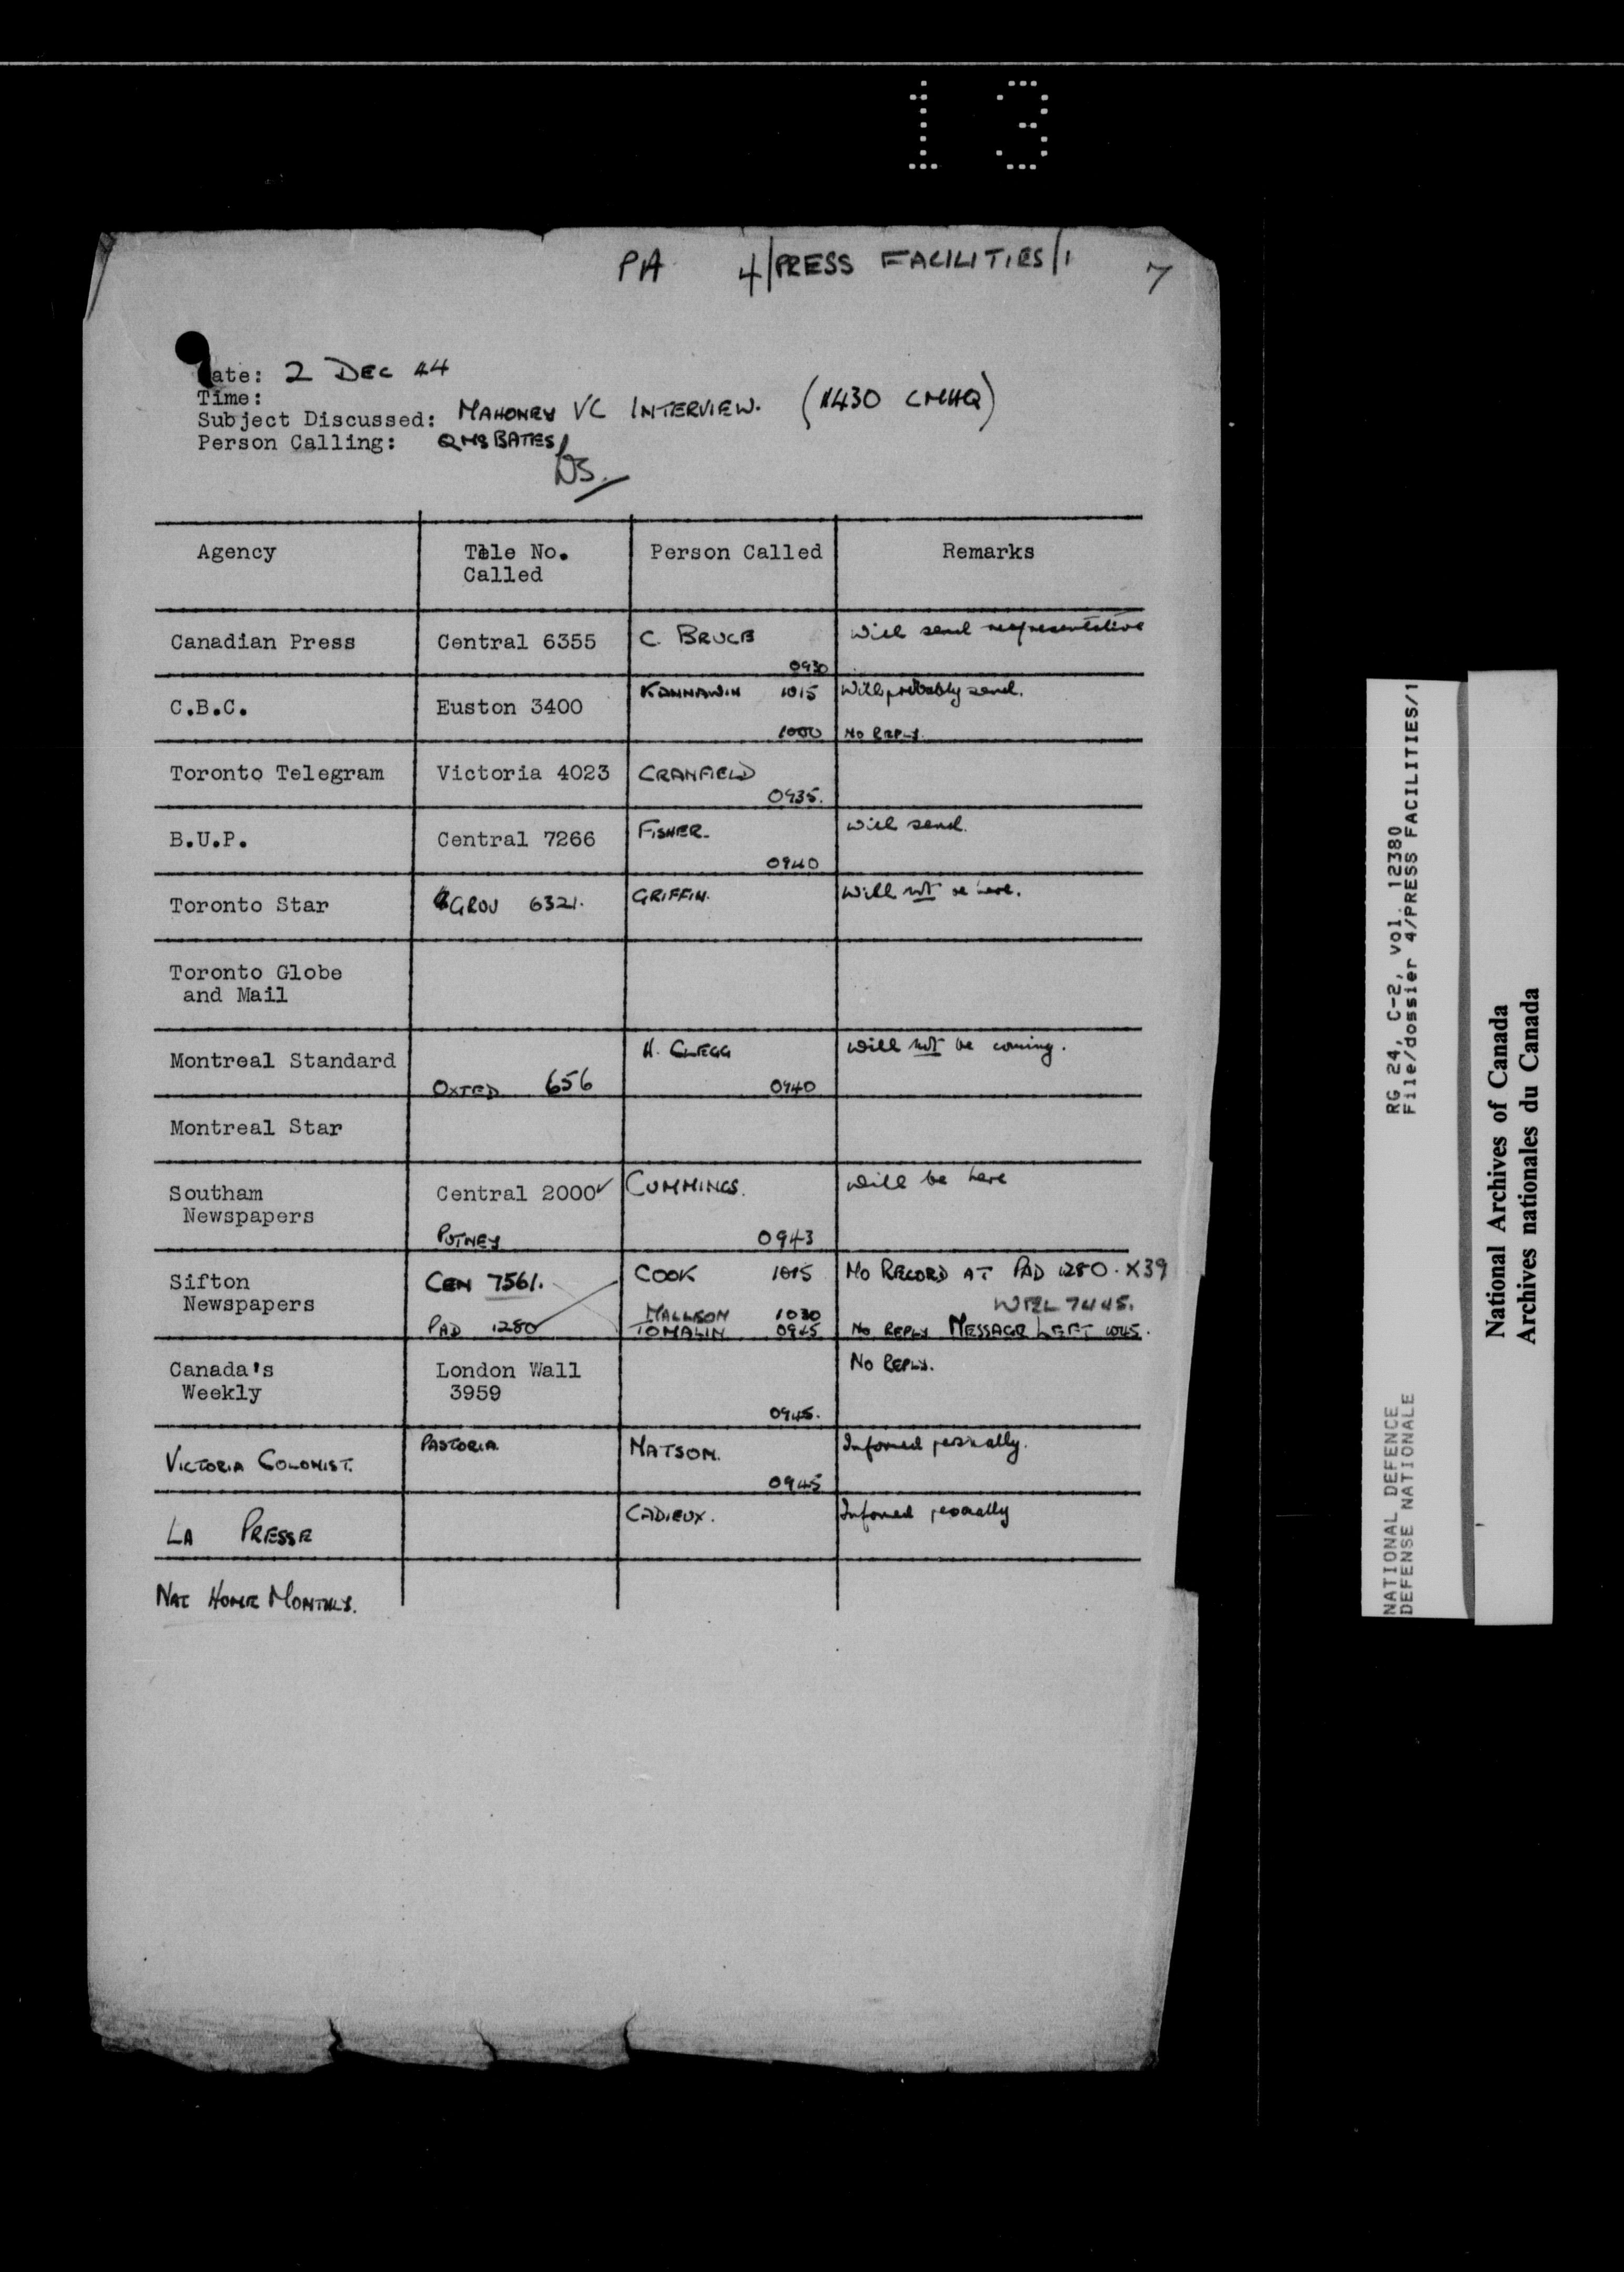 13
PA 4/PRESS FACILITIES/1 7
Date: 2 DEC 44
Time:
Subject Discussed: MAHONEY VC INTERVIEW. (1430 CMHQ)
Person Calling: QMS BATES/
Agency Tele No. Called Person Called Remarks
Canadian Press Central 6355 C. BRUCE 0930 Will send representative
C.B.C. Euston 3400 KANNAWIN 1015 Will probably send.
1000 NO REPLY.
Toronto Telegram Victoria 4023 CRANFIELD 0935.
B.U.P. Central 7266 FISHER. 0940 Will send.
Toronto Star GROV 6321. GRIFFIN. Will not be here.
Toronto Globe
and Mail
Montreal Standard OXTED 656 H. CLEGG 0940 Will not be coming.
Montreal Star
Southam
Newspapers Central 2000 ✓ PUTNEY CUMMINGS. 0943 Will be here
Sifton
Newspapers CEN 7561. COOK 1015 NO RECORD AT PAD 1280. X39
MALLSON 1030 WEL 7445.
PAD 1280 TOMALIN 0945 NO REPLY MESSAGE LEFT 1045.
Canada's
Weekly London Wall
3959 0945. NO REPLY.
VICTORIA COLONIST. PASTORIA MATSON. 0945 Informed personally.
LA PRESSE CADIEUX. Informed personally
NAT HOME MONTHLY.
RG 24, C-2, vol. 12380
File/dossier 4/PRESS FACILITIES/1
NATIONAL DEFENCE
DEFENSE NATIONALE
National Archives of Canada
Archives nationales du Canada